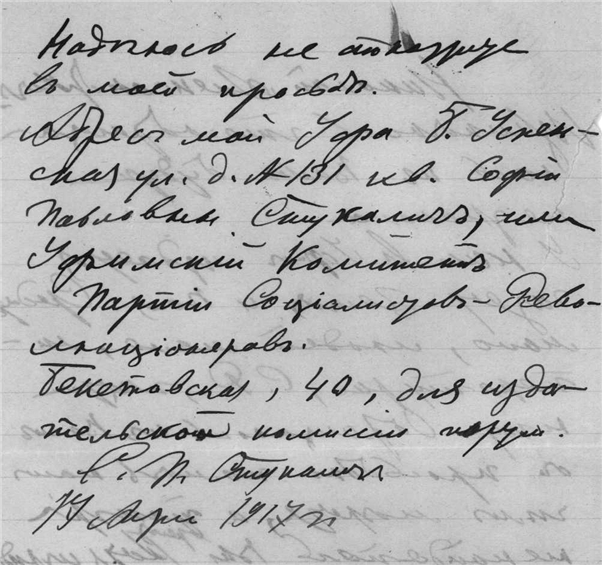 Надѣюсь не откажите
въ моей просьбѣ.
Адресъ мой Уфа Б. Успен-
ская ул. д. № 131 кв. Софіи
Павловны Стукаличъ, или
Уфимскій Комитетъ
Партіи Соціалистовъ-Рево-
люціонеровъ.
Бекетовская, 40, для изда-
тельской комиссіи
С. П. Стукаличъ
17 1917 г.